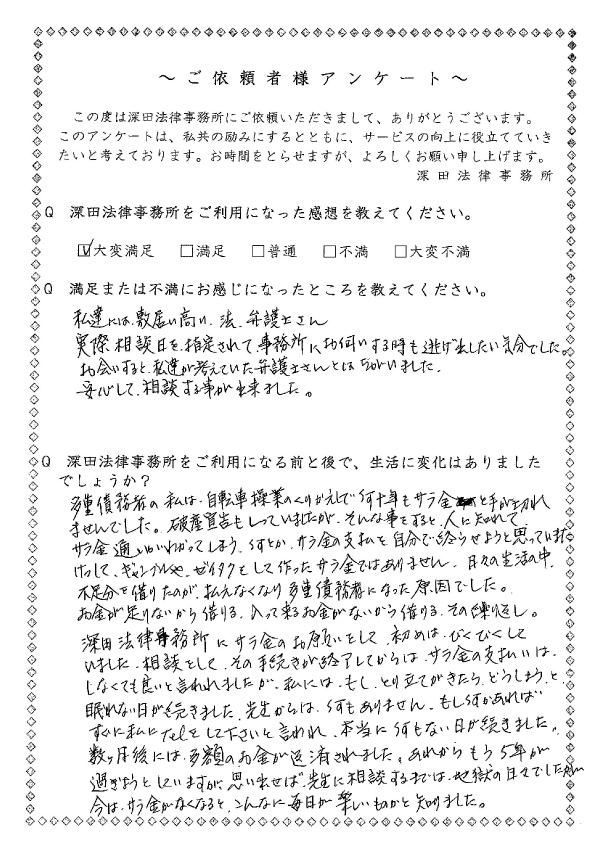 ～ご依頼者様アンケート～
この度は深田法律事務所にご依頼いただきまして、ありがとうございます。
このアンケートは、私共の励みにするとともに、サービスの向上に役立てていき
たいと考えております。お時間をとらせますが、よろしくお願い申し上げます。
深田法律事務所
Q 深田法律事務所をご利用になった感想を教えてください。
☑大変満足 □満足 □普通 □不満 □大変不満
Q 満足または不満にお感じになったところを教えてください。
私達には、敷居い高い、法、弁護士さん
実際相談日を指定されて、事務所にお伺いする時も逃げ出したい気分でした。
お会いすると、私達が考えていた弁護士さんとはちがいました。
安心して、相談する事が出来ました。
Q 深田法律事務所をご利用になる前と後で、生活に変化はありました
でしょうか？
多重債務者の私は、自転車操業のくりかえしで何十年もサラ金と手が切れ
ませんでした。破産宣告もしっていましたが、そんな事をすると、人に知れて
サラ金通いがわかってしまう、何とか、サラ金の支払を自分で終らせようと思っていました
けっして、ギャンブルや、ゼイタクをして作ったサラ金ではありません。日々の生活の中、
不足分を借りたのが、払えなくなり多重債務者になった原因でした。
お金が足りないから借りる、入って来るお金がないから借りる、その繰り返し。
深田法律事務所にサラ金のお願いをして、初めは、びくびくして
いました。相談をして、その手続きが終了してからは、サラ金の支払いは、
しなくても良いと言われましたが、私には、もし、とり立てがきたら、どうしよう、と
眠れない日が続きました。先生からは、何もありません、もし何かあれば
すぐに私にTELをして下さいと言われ、本当に何もない日が続きました。
数ヶ月後には、多額のお金が返済されました。あれからもう5年が
過ぎようとしていますが、思い出せば、先生に相談するまでは、地獄の日々でした
今は、サラ金がなくなると、こんなに毎日が楽しいものかと知りました。